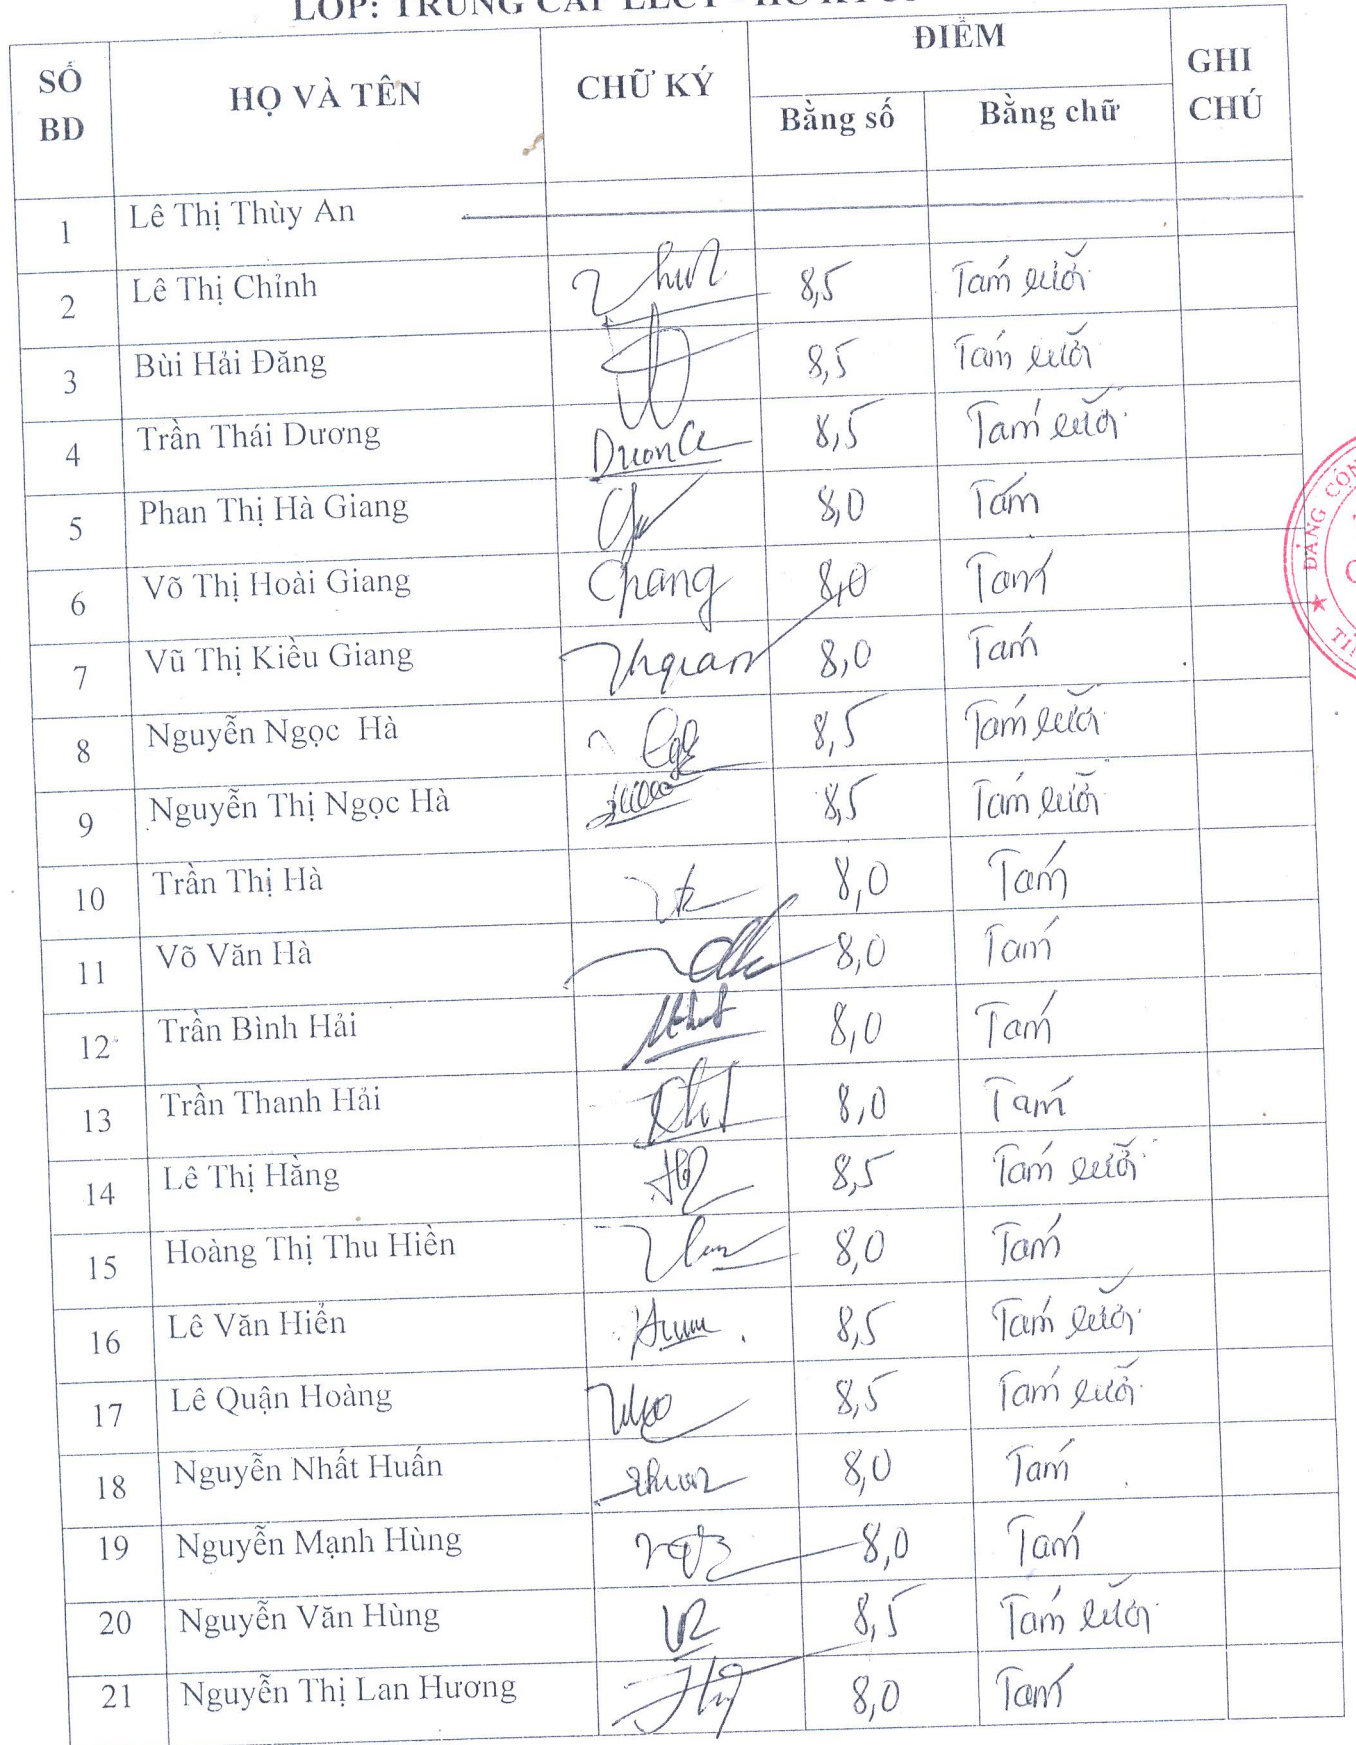 LỚP: TRUNG CẤP LLCT - HC K
SỐ BD HỌ VÀ TÊN CHỮ KÝ ĐIỂM GHI CHÚ
Bằng số Bằng chữ
1 Lê Thị Thùy An
2 Lê Thị Chỉnh 8,5 Tám rưỡi
3 Bùi Hải Đăng 8,5 Tám rưỡi
4 Trần Thái Dương 8,5 Tám rưỡi
5 Phan Thị Hà Giang 8,0 Tám
6 Võ Thị Hoài Giang 8,0 Tám
7 Vũ Thị Kiều Giang 8,0 Tám
8 Nguyễn Ngọc Hà 8,5 Tám rưỡi
9 Nguyễn Thị Ngọc Hà 8,5 Tám rưỡi
10 Trần Thị Hà 8,0 Tám
11 Võ Văn Hà 8,0 Tám
12 Trần Bình Hải 8,0 Tám
13 Trần Thanh Hải 8,0 Tám
14 Lê Thị Hằng 8,5 Tám rưỡi
15 Hoàng Thị Thu Hiền 8,0 Tám
16 Lê Văn Hiển 8,5 Tám rưỡi
17 Lê Quận Hoàng 8,5 Tám rưỡi
18 Nguyễn Nhất Huấn 8,0 Tám
19 Nguyễn Mạnh Hùng 8,0 Tám
20 Nguyễn Văn Hùng 8,5 Tám rưỡi
21 Nguyễn Thị Lan Hương 8,0 Tám
ĐẢNG CỘN